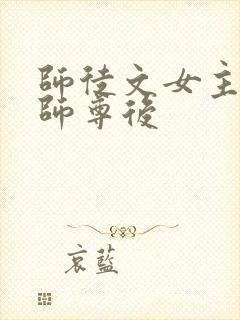 師徒文女主
師尊後
哀藍